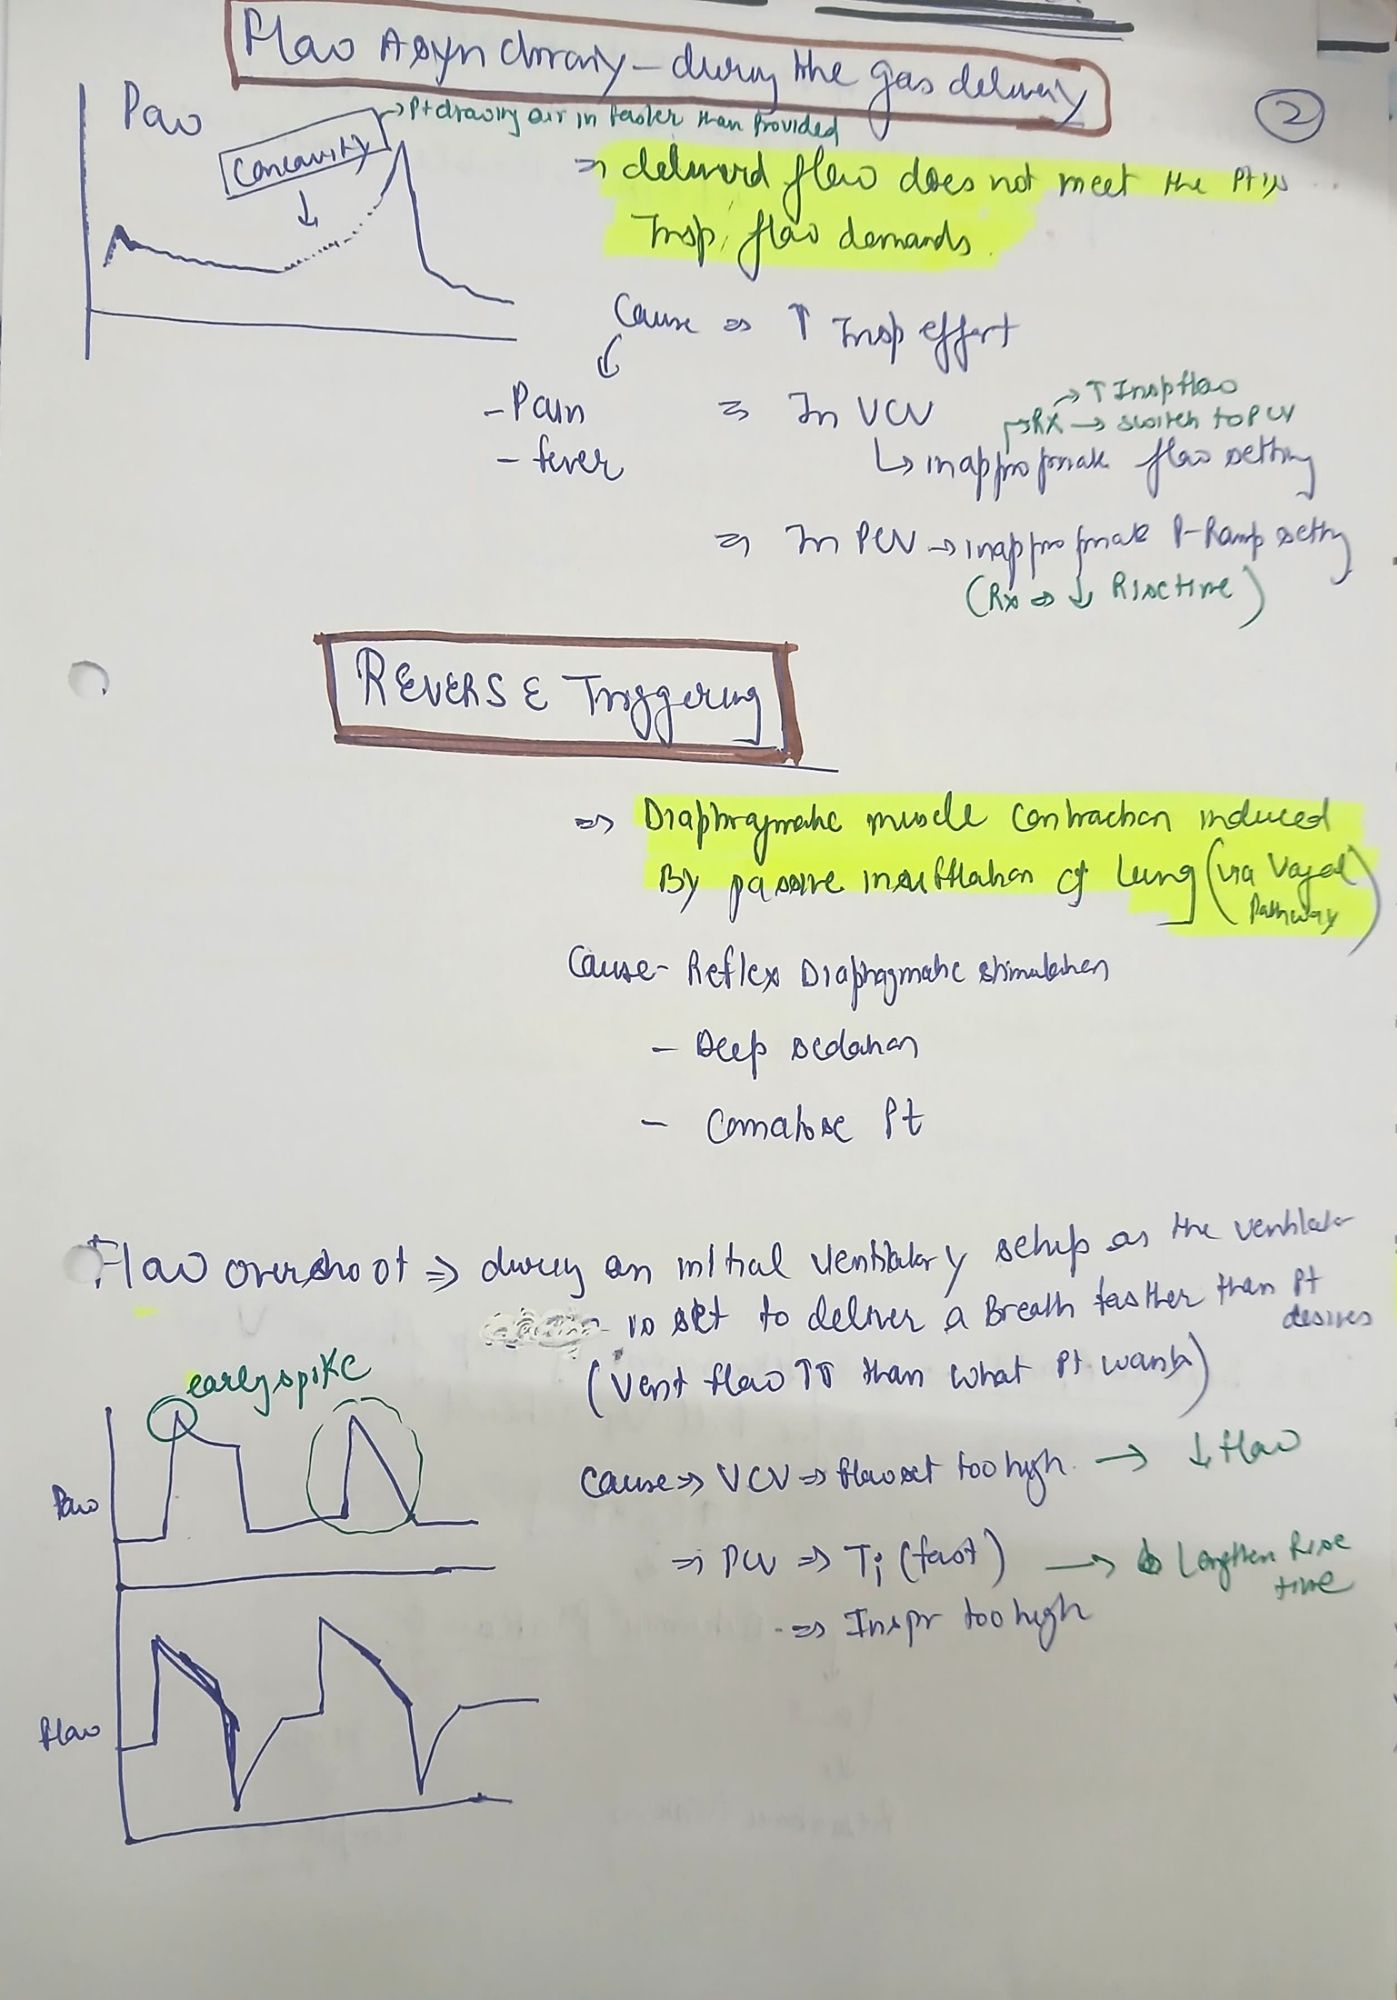 Flow Asynchrony – during the gas delivery
2
Paw
→ Pt drawing air in faster than Provided
Concavity
⇒ delivered flow does not meet the Pt's
Insp. flow demands.
Cause ⇒ ↑ Insp effort
- Pain
- fever
⇒ In VCV
→ ↑ Insp flow
→ Rx → switch to PCV
↳ inappropriate flow setting
⇒ In PCV → inappropriate P-Ramp setting
(Rx ⇒ ↓ Rise time)
REVERSE Triggering
⇒ Diaphragmatic muscle contraction induced
By passive insufflation of Lung (via Vagal
Pathway)
Cause - Reflex Diaphragmatic stimulation
- Deep sedation
- Comatose Pt
Flow overshoot ⇒ during an initial ventilatory setup as the ventilator
is set to deliver a Breath fasther than Pt
desires
(Vent flow ↑↑ than what Pt wants)
early spike
Paw
Cause ⇒ VCV ⇒ flow set too high. → ↓ flow
⇒ PCV ⇒ Ti (fast) → Lengthen Rise
time
⇒ Inspr too high
flow